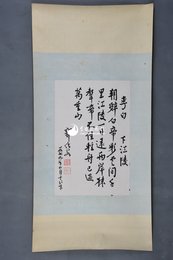 李白 下江陵
朝辭白帝彩雲間千
里江陵一日還兩岸猿
聲啼不住輕舟已過
萬重山